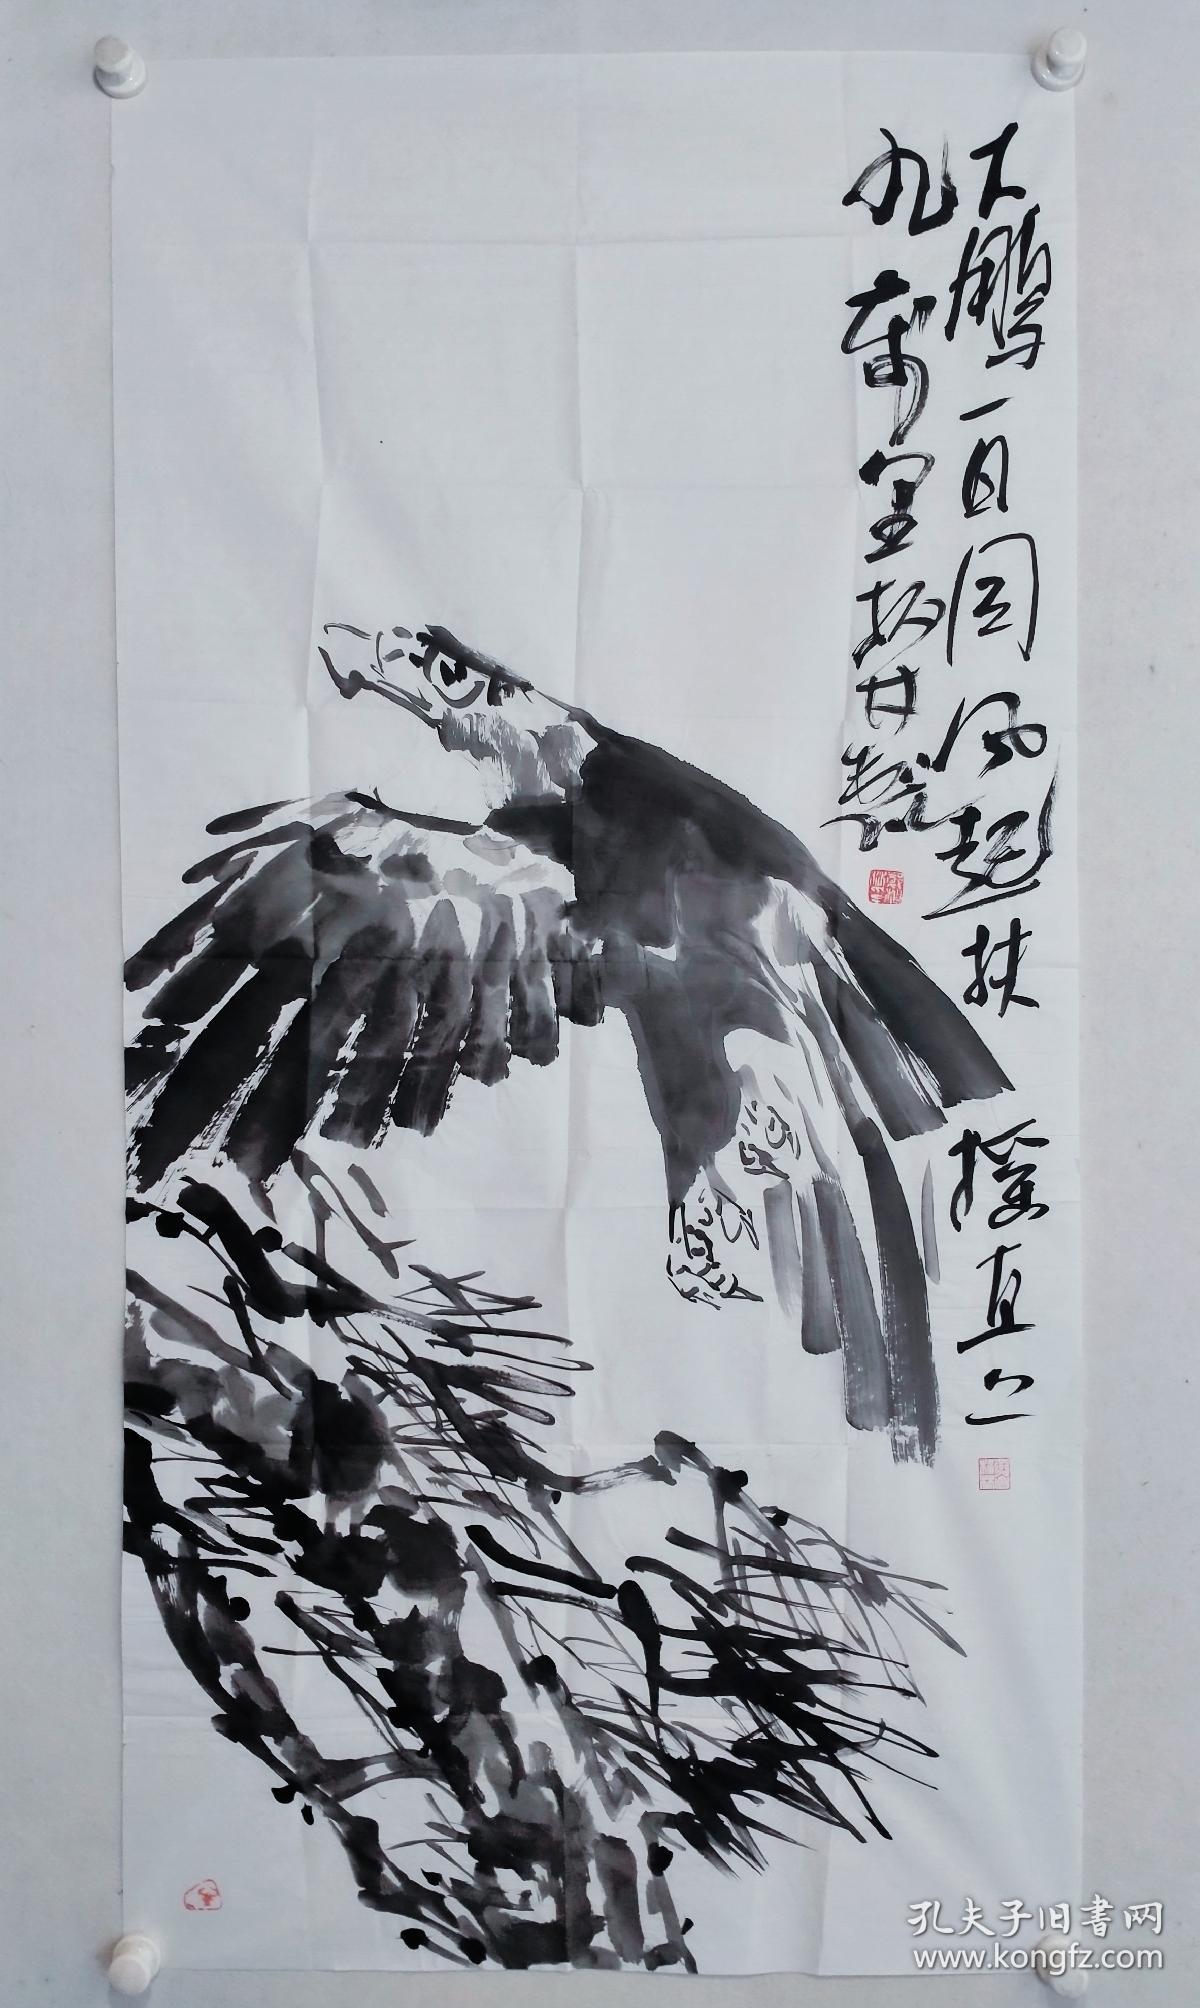 大鹏一日同风起扶摇直上
九万里
孔夫子旧書网
www.kongfz.com